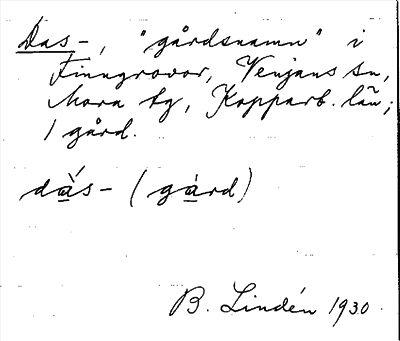 Das-, "gårdsnamn" i
Finngrovor, Venjans sn,
Mora tg, Kopparb. län;
1 gård.
dàs- (gård)
B. Lindén 1930.